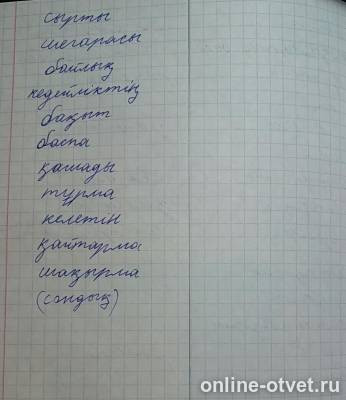 сырты
шегарасы
байлық
кедейліктің
бақыт
баспа
қашады
тұрма
келетін
қайтарма
шақырма
(сандық)
online-otvet.ru